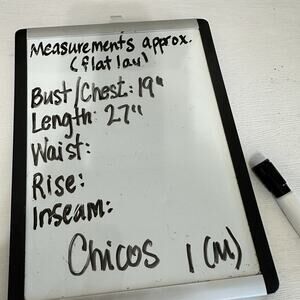 Measurements approx.
(flat lay)
Bust/Chest: 19"
Length: 27"
Waist:
Rise:
Inseam:
Chicos 1 (M)